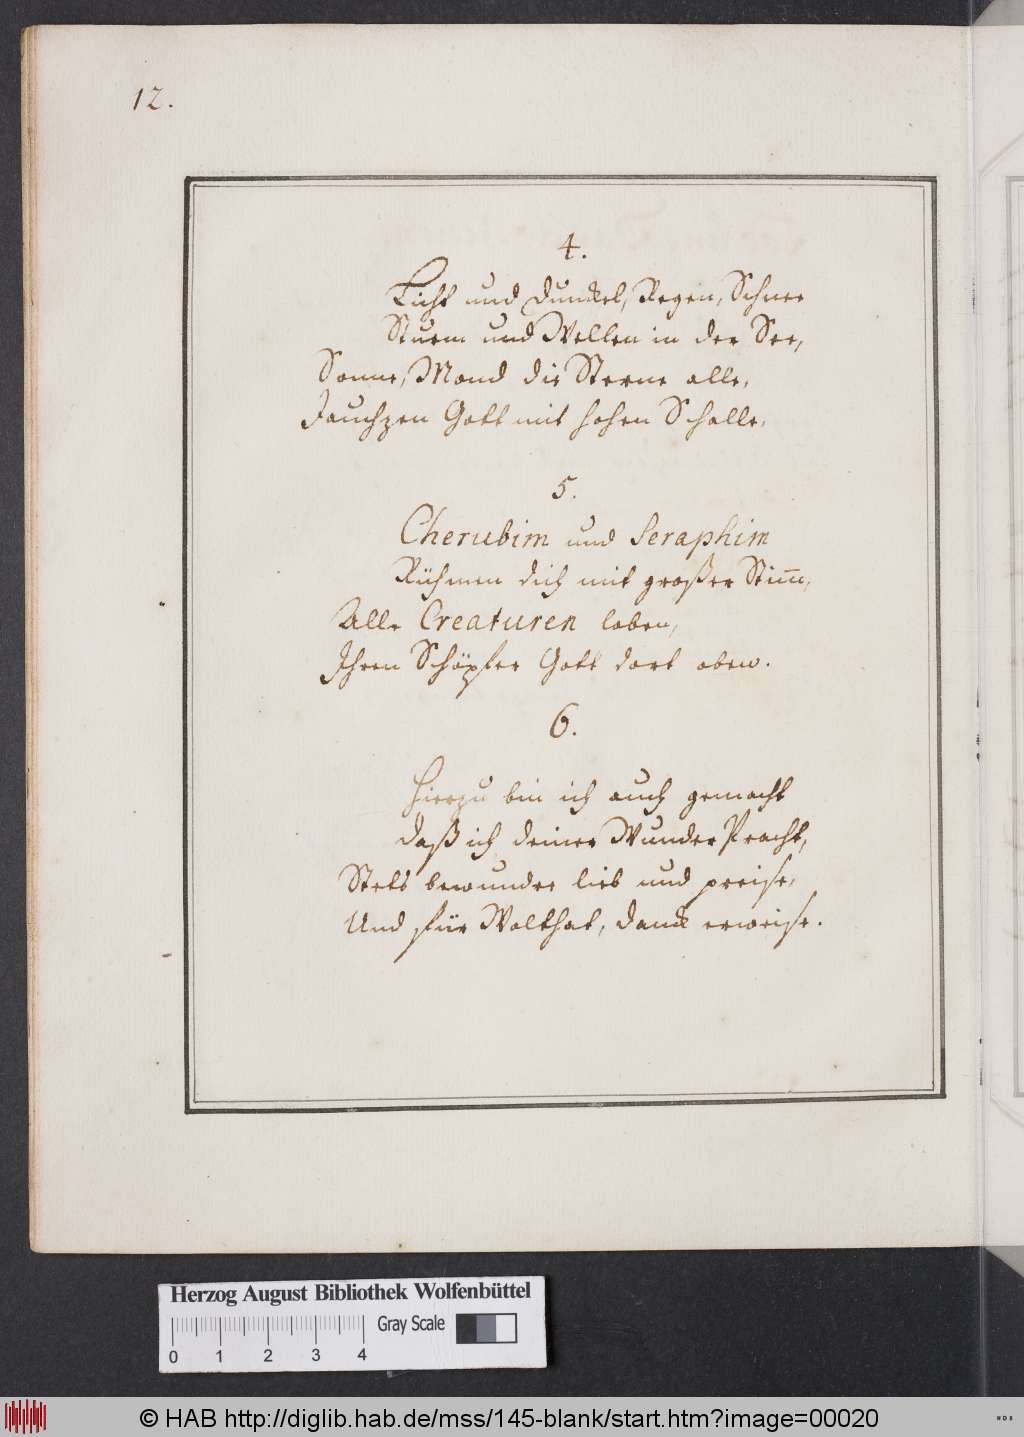 12.
4.
Licht und Dunckel, Regen, Schnee
Sturm und Wellen in der See,
Sonne, Mond die Sterne alle,
Jauchzen Gott mit hohen Schalle,
5.
Cherubim und Seraphim
Rühmen dich mit großer Stim̅,
Alle Creaturen loben,
Ihren Schöpfer Gott dort oben.
6.
Hierzu bin ich auch gemacht
daß ich deiner Wunder Pracht,
Stets bewunder lieb und preise,
Und für Wolthat, danck erweise.
Herzog August Bibliothek Wolfenbüttel
Gray Scale
0 1 2 3 4
© HAB http://diglib.hab.de/mss/145-blank/start.htm?image=00020